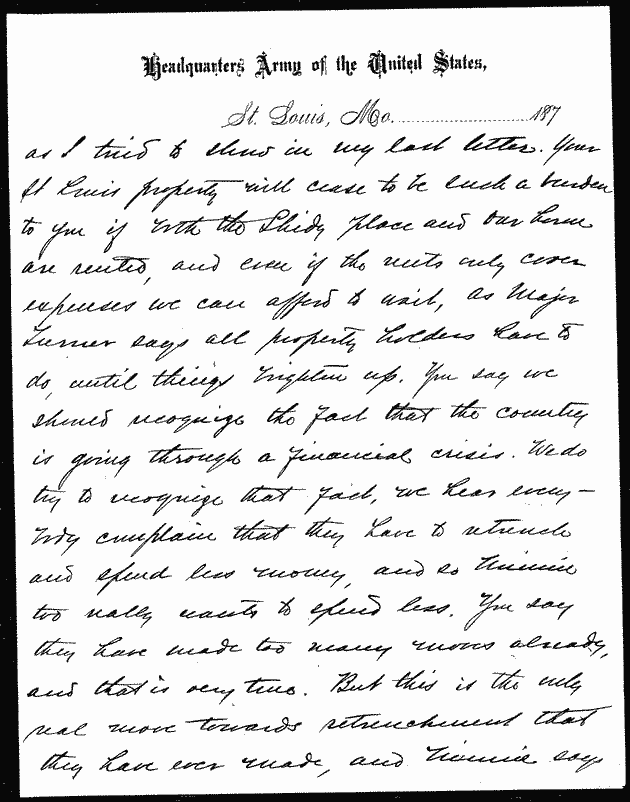 Headquarters Army of the United States,
St. Louis, Mo. 187
as I tried to show in my last letter. Your
St Louis property will cease to be such a burden
to you if both the Shidy place and our home
are rented, and even if the rents only cover
expenses we can afford to wait, as Major
Turner says all property holders have to
do, until things brighten up. You say we
should recognize the fact that the country
is going through a financial crisis. We do
try to recognize that fact, we hear every-
body complain that they have to retrench
and spend less money, and so Minnie
too really wants to spend less. You say
they have made too many moves already,
and that is very true. But this is the only
real move towards retrenchment that
they have ever made, and Minnie says